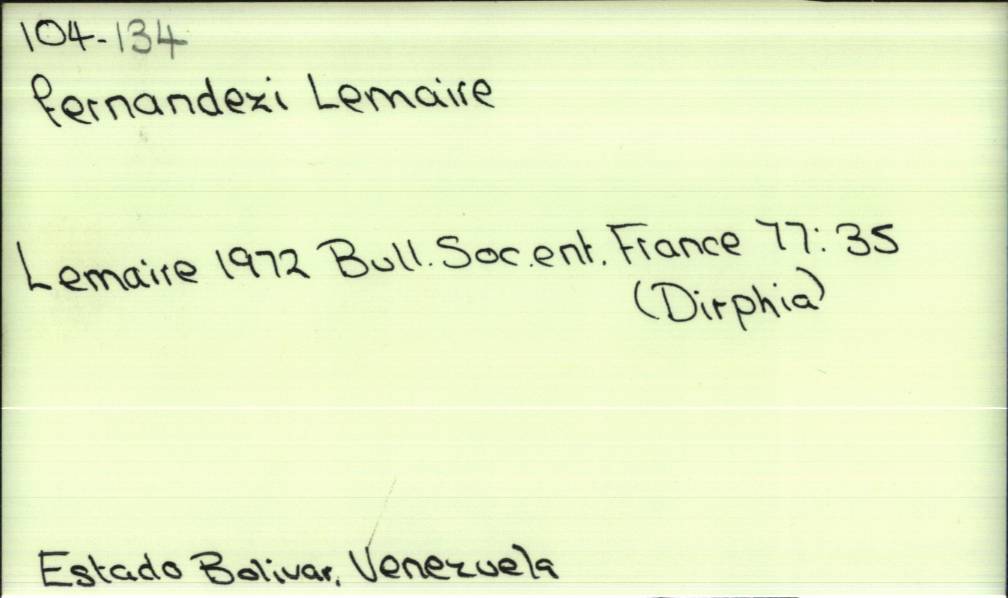 104-134
fernandezi Lemaire
Lemaire 1972 Bull. Soc. ent. France 77: 35
(Dirphia)
Estado Bolivar, Venezuela